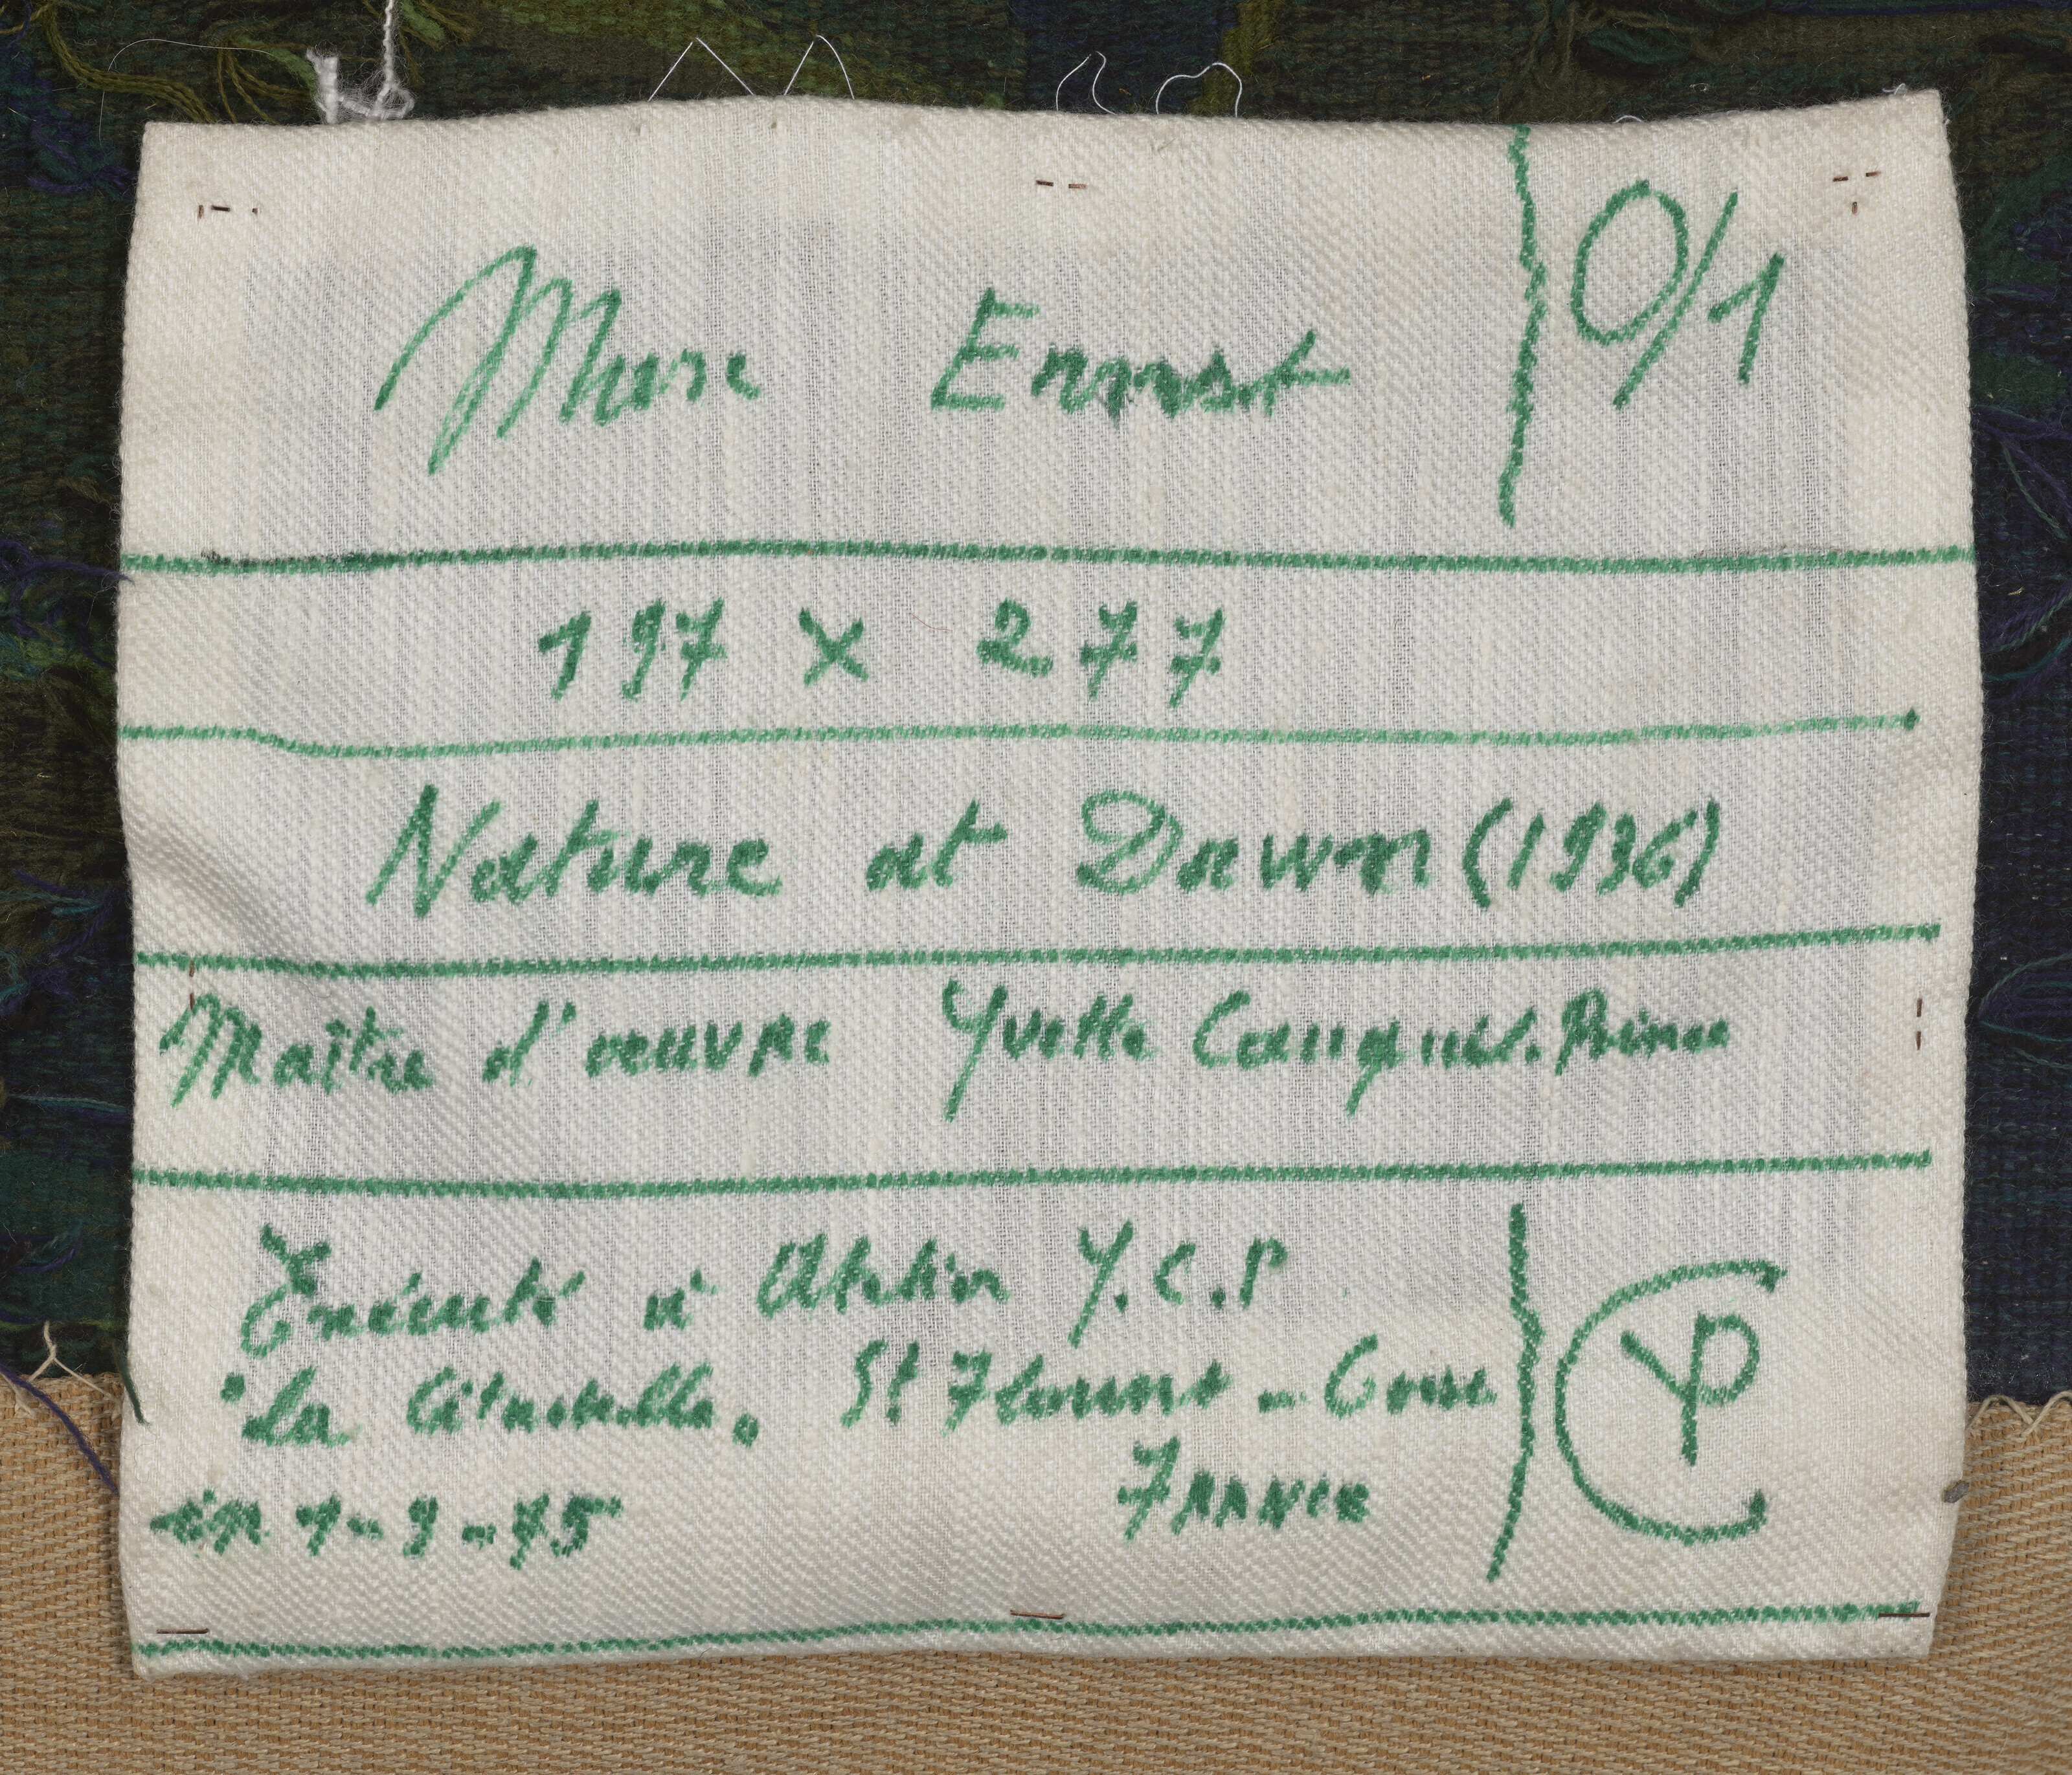 Max Ernst 0/1
197 x 277
Nature at Dawn (1936)
Maître d'oeuvre Yvette Cauquil-Prince
Exécuté à Atelier Y.C.P
"La Citadelle" St Florent - Corse
FRANCE
en 1-9-75
CYP